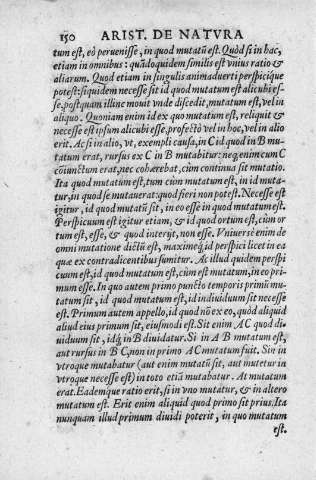 150 ARIST. DE NATVRA
tum est, eò peruenisse, in quod mutatũ est. Quòd si in hac,
etiam in omnibus: quãdoquidem similis est vnius ratio &
aliarum. Quod etiam in singulis animaduerti perspicique
potest: siquidem necesse sit id quod mutatum est alicubi es-
se, postquam illinc mouit vnde discedit, mutatum est, vel in
aliquo. Quoniam enim id ex quo mutatum est, reliquit &
necesse est ipsum alicubi esse, profectò vel in hoc, vel in alio
erit. Ac si in alio, vt, exempli causa, in C id quod in B mu-
tatum erat, rursus ex C in B mutabitur: neq; enim cum C
cõiunctum erat, nec cohærebat, cùm continua sit mutatio.
Ita quod mutatum est, tum cùm mutatum est, in id muta-
tur, in quod se mutauerat: quod fieri non potest. Necesse est
igitur, id quod mutatũ sit, in eo esse in quod mutatum est.
Perspicuum est igitur etiam, & id quod ortum est, cùm or
tum est, esse, & quod interijt, non esse. Vniuersè enim de
omni mutatione dictũ est, maximeq́; id perspici licet in ea
quæ ex contradicentibus sumitur. Ac illud quidem perspi
cuum est, id quod mutatum est, cùm est mutatum, in eo pri-
mum esse. In quo autem primo puncto temporis primũ mu-
tatum sit, id quod mutatum est, id indiuiduum sit necesse
est. Primum autem appello, id quod nõ ex eo, quòd aliquid
aliud eius primum sit, eiusmodi est. Sit enim AC quod di-
uiduum sit, idq́; in B diuidatur. Si in AB mutatum est,
aut rursus in BC, non in primo AC mutatum fuit. Sin in
vtroque mutabatur (aut enim mutatũ sit, aut mutetur in
vtroque necesse est) in toto etiã mutabatur. At mutatum
erat. Eadem ratio erit, si in vno mutatur, & in altero
mutatum est. Erit enim aliquid quod primo sit prius. Ita
nunquam illud primum diuidi poterit, in quo mutatum
est.